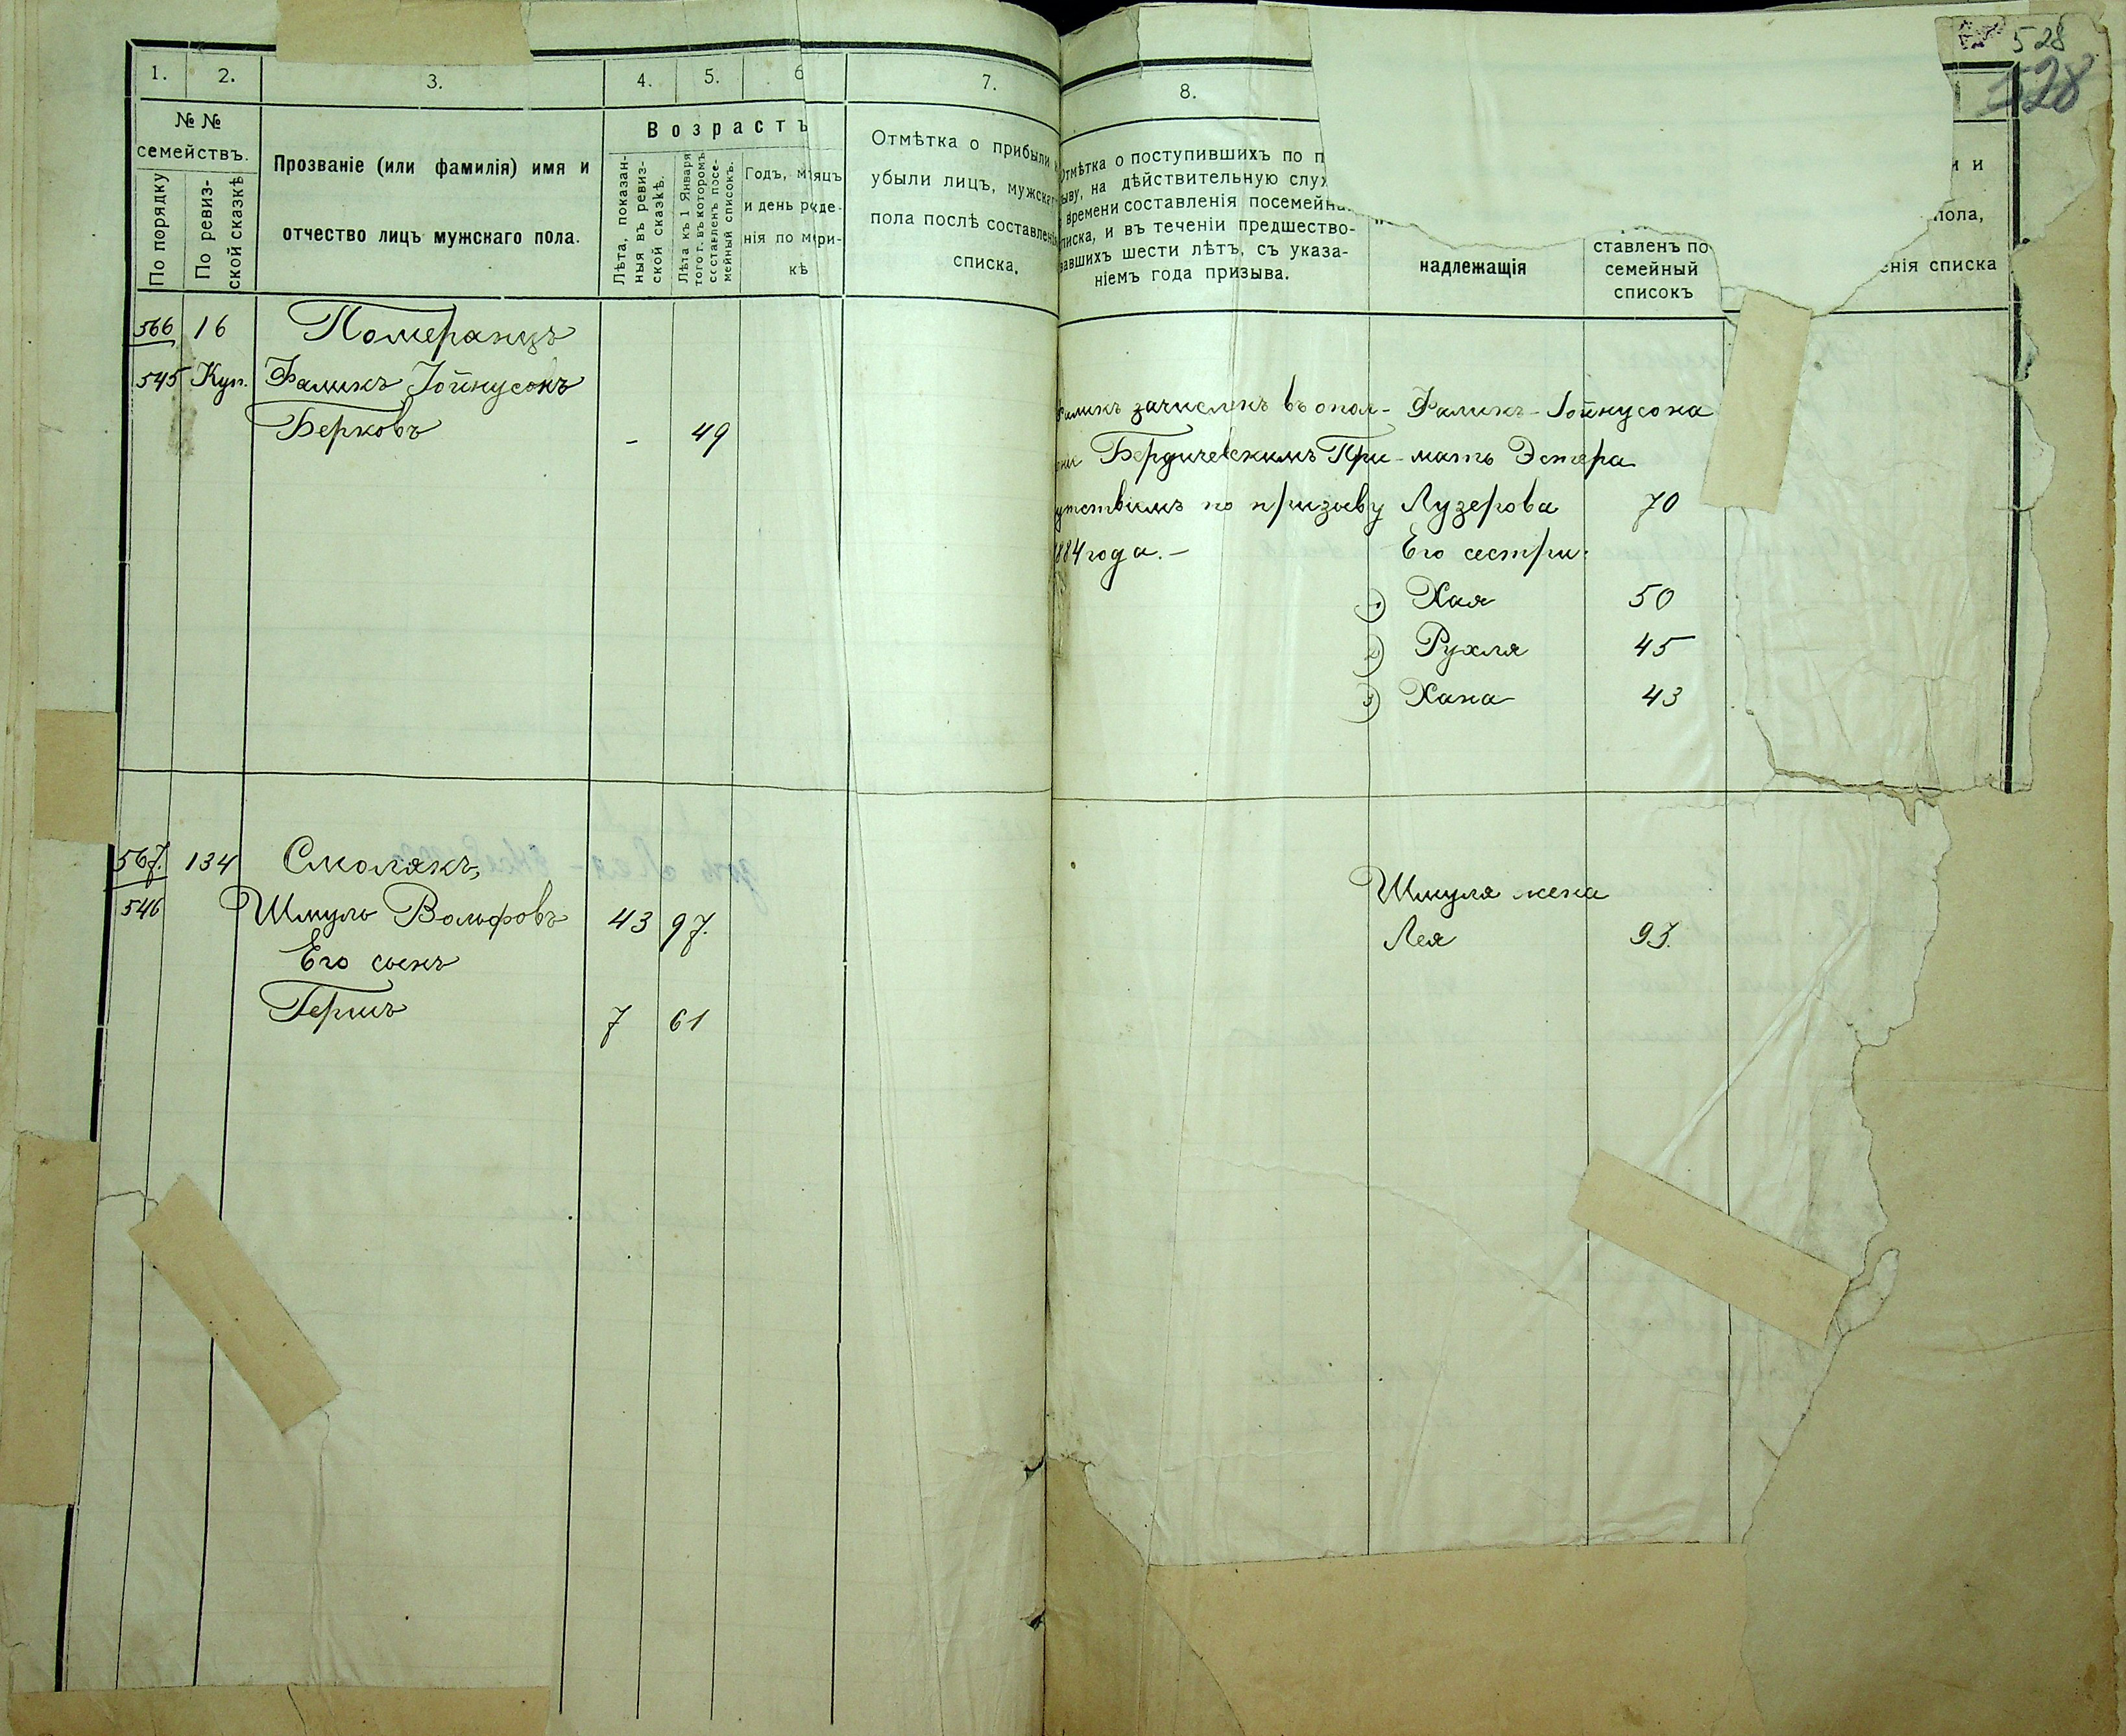 528
528
1.
2.
3.
4.
5.
6
7.
8.
№ №
семействъ.
По порядку
По ревиз-
ской сказкѣ
Прозваніе (или фамилія) имя и
отчество лицъ мужскаго пола.
Возрастъ
Лѣта, показан-
ныя въ ревиз-
ской сказкѣ.
Лѣта къ 1 Января
того г. въ которомъ
составленъ посе-
мейный списокъ.
Годъ, мѣсяцъ
и день рожде-
нія по метри-
кѣ
Отмѣтка о прибыли и
убыли лицъ, мужскаго
пола послѣ составленія
списка.
Отмѣтка о поступившихъ по п
зыву, на дѣйствительную служ
времени составленія посемейна
писка, и въ теченіи предшество-
вавшихъ шести лѣтъ, съ указа-
ніемъ года призыва.
надлежащія
ставленъ по
семейный
списокъ
и и
пола,
енія списка
566 16 Померанцъ
545 Куп. Фаликъ Іойнусонъ
Берковъ - 49
Фаликъ зачисленъ въ опол-
ченіе Бердичевскимъ При-
сутствіемъ по призыву
1884 года. -
Фаликъ-Іойнусона
мать Эстера
Лузерова 70
Его сестры:
1) Хая 50
2) Рухля 45
3) Хана 43
567. 134 Смолякъ,
546 Шмуль Вольфовъ 43 97.
Его сынъ
Гершъ 7 61
Шмуля жена
Лея 93.